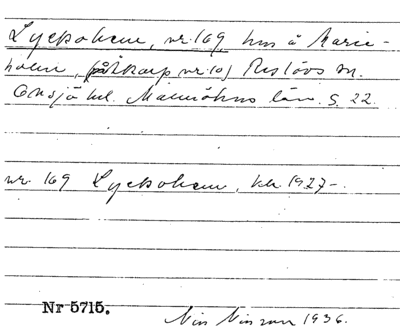 Lyckohem, nr. 169 hus å Marie-
holm, (Åkarp nr. 10) Reslövs sn.
Onsjö hd. Malmöhus län. S. 22.
nr. 169 Lyckohem, kk. 1927-.
Nr 5715.
Nils Nilsson 1936.